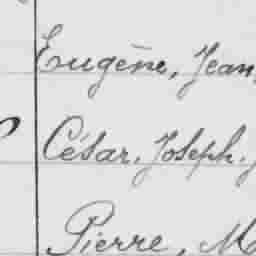 Eugène, Jean,
César, Joseph,
Pierre, M